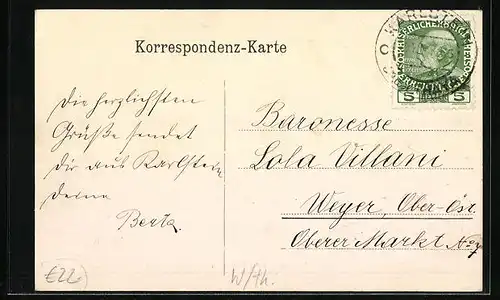 Korrespondenz-Karte
KARLST
5 5
Die herzlichsten
Grüße sendet
Dir aus Karlstein
Deine
Berta.
Baronesse
Lola Villani
Weyer, Ober-Öst.
Oberer Markt No 7
£22.
W/th.